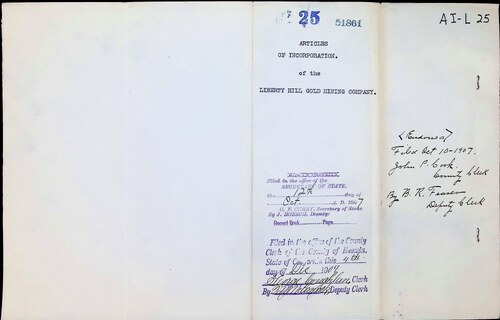 25
51861
AI-L 25
ARTICLES
OF INCORPORATION.
of the
LIBERTY HILL GOLD MINING COMPANY.
(Endorsed)
Filed Oct 10-1907.
John P. Cook,
County Clerk
By B. R. Fraser
Deputy Clerk
Filed in the office of the
SECRETARY OF STATE,
the 12th day of
Oct. A. D. 1907
C. F. CURRY, Secretary of State
By J. HOESCH, Deputy
Record Book Page
Filed in the office of the County
Clerk of the County of
State of California this 4th
day of Dec 190
George Coughlan, Clerk
By Deputy Clerk